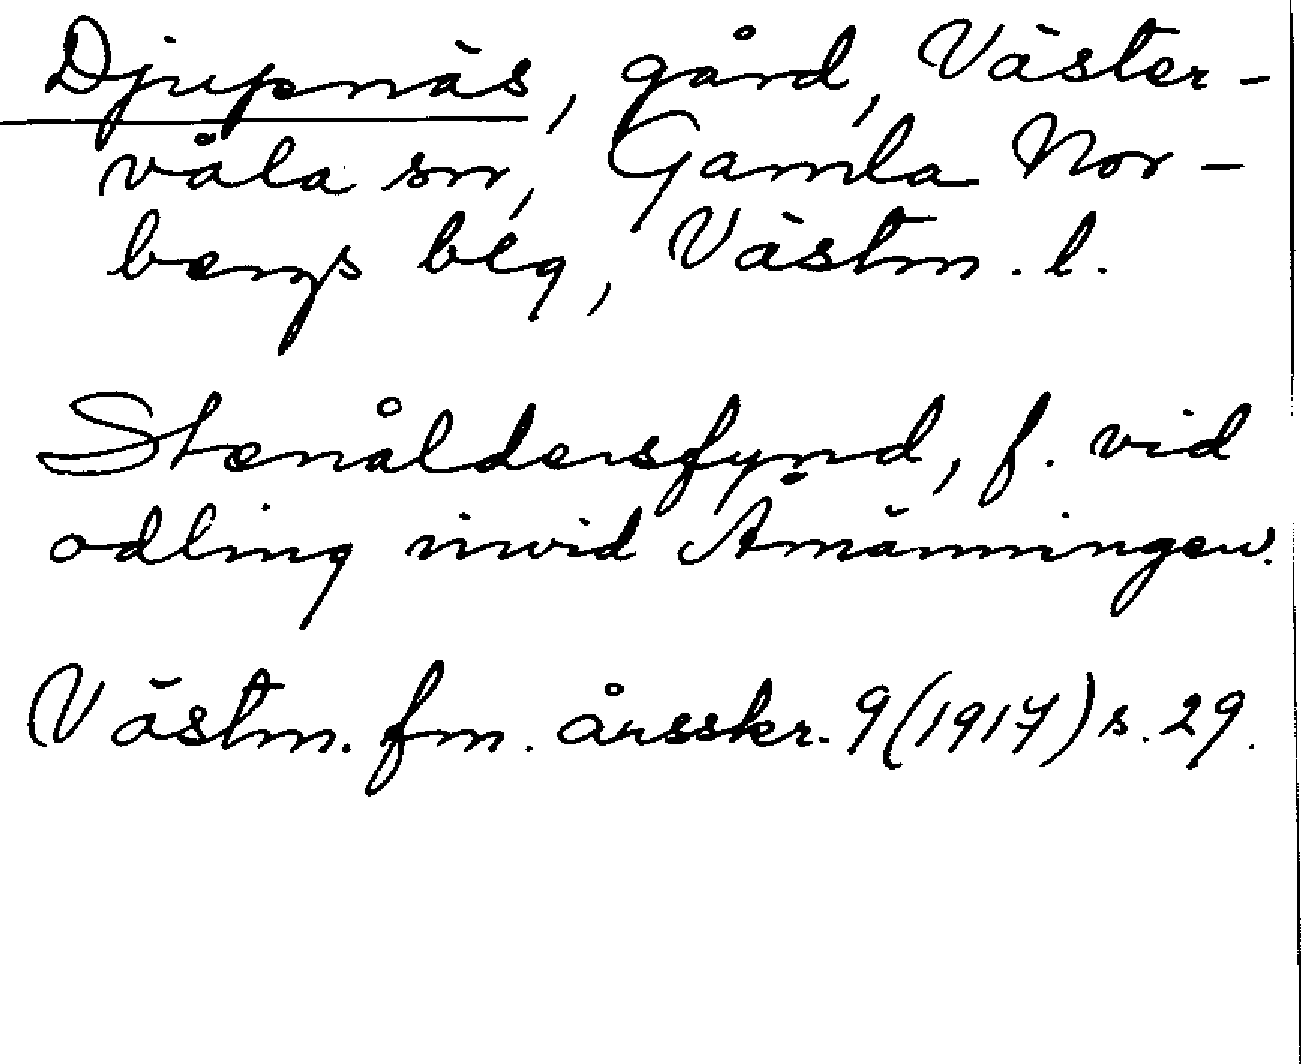 Djupnäs, gård, Väster-
våla sn, Gamla Nor-
bergs blg, Västm. l.
Stenåldersfynd, f. vid
odling invid Åmänningen.
Västm. fm. årsskr. 9 (1917) s. 29.